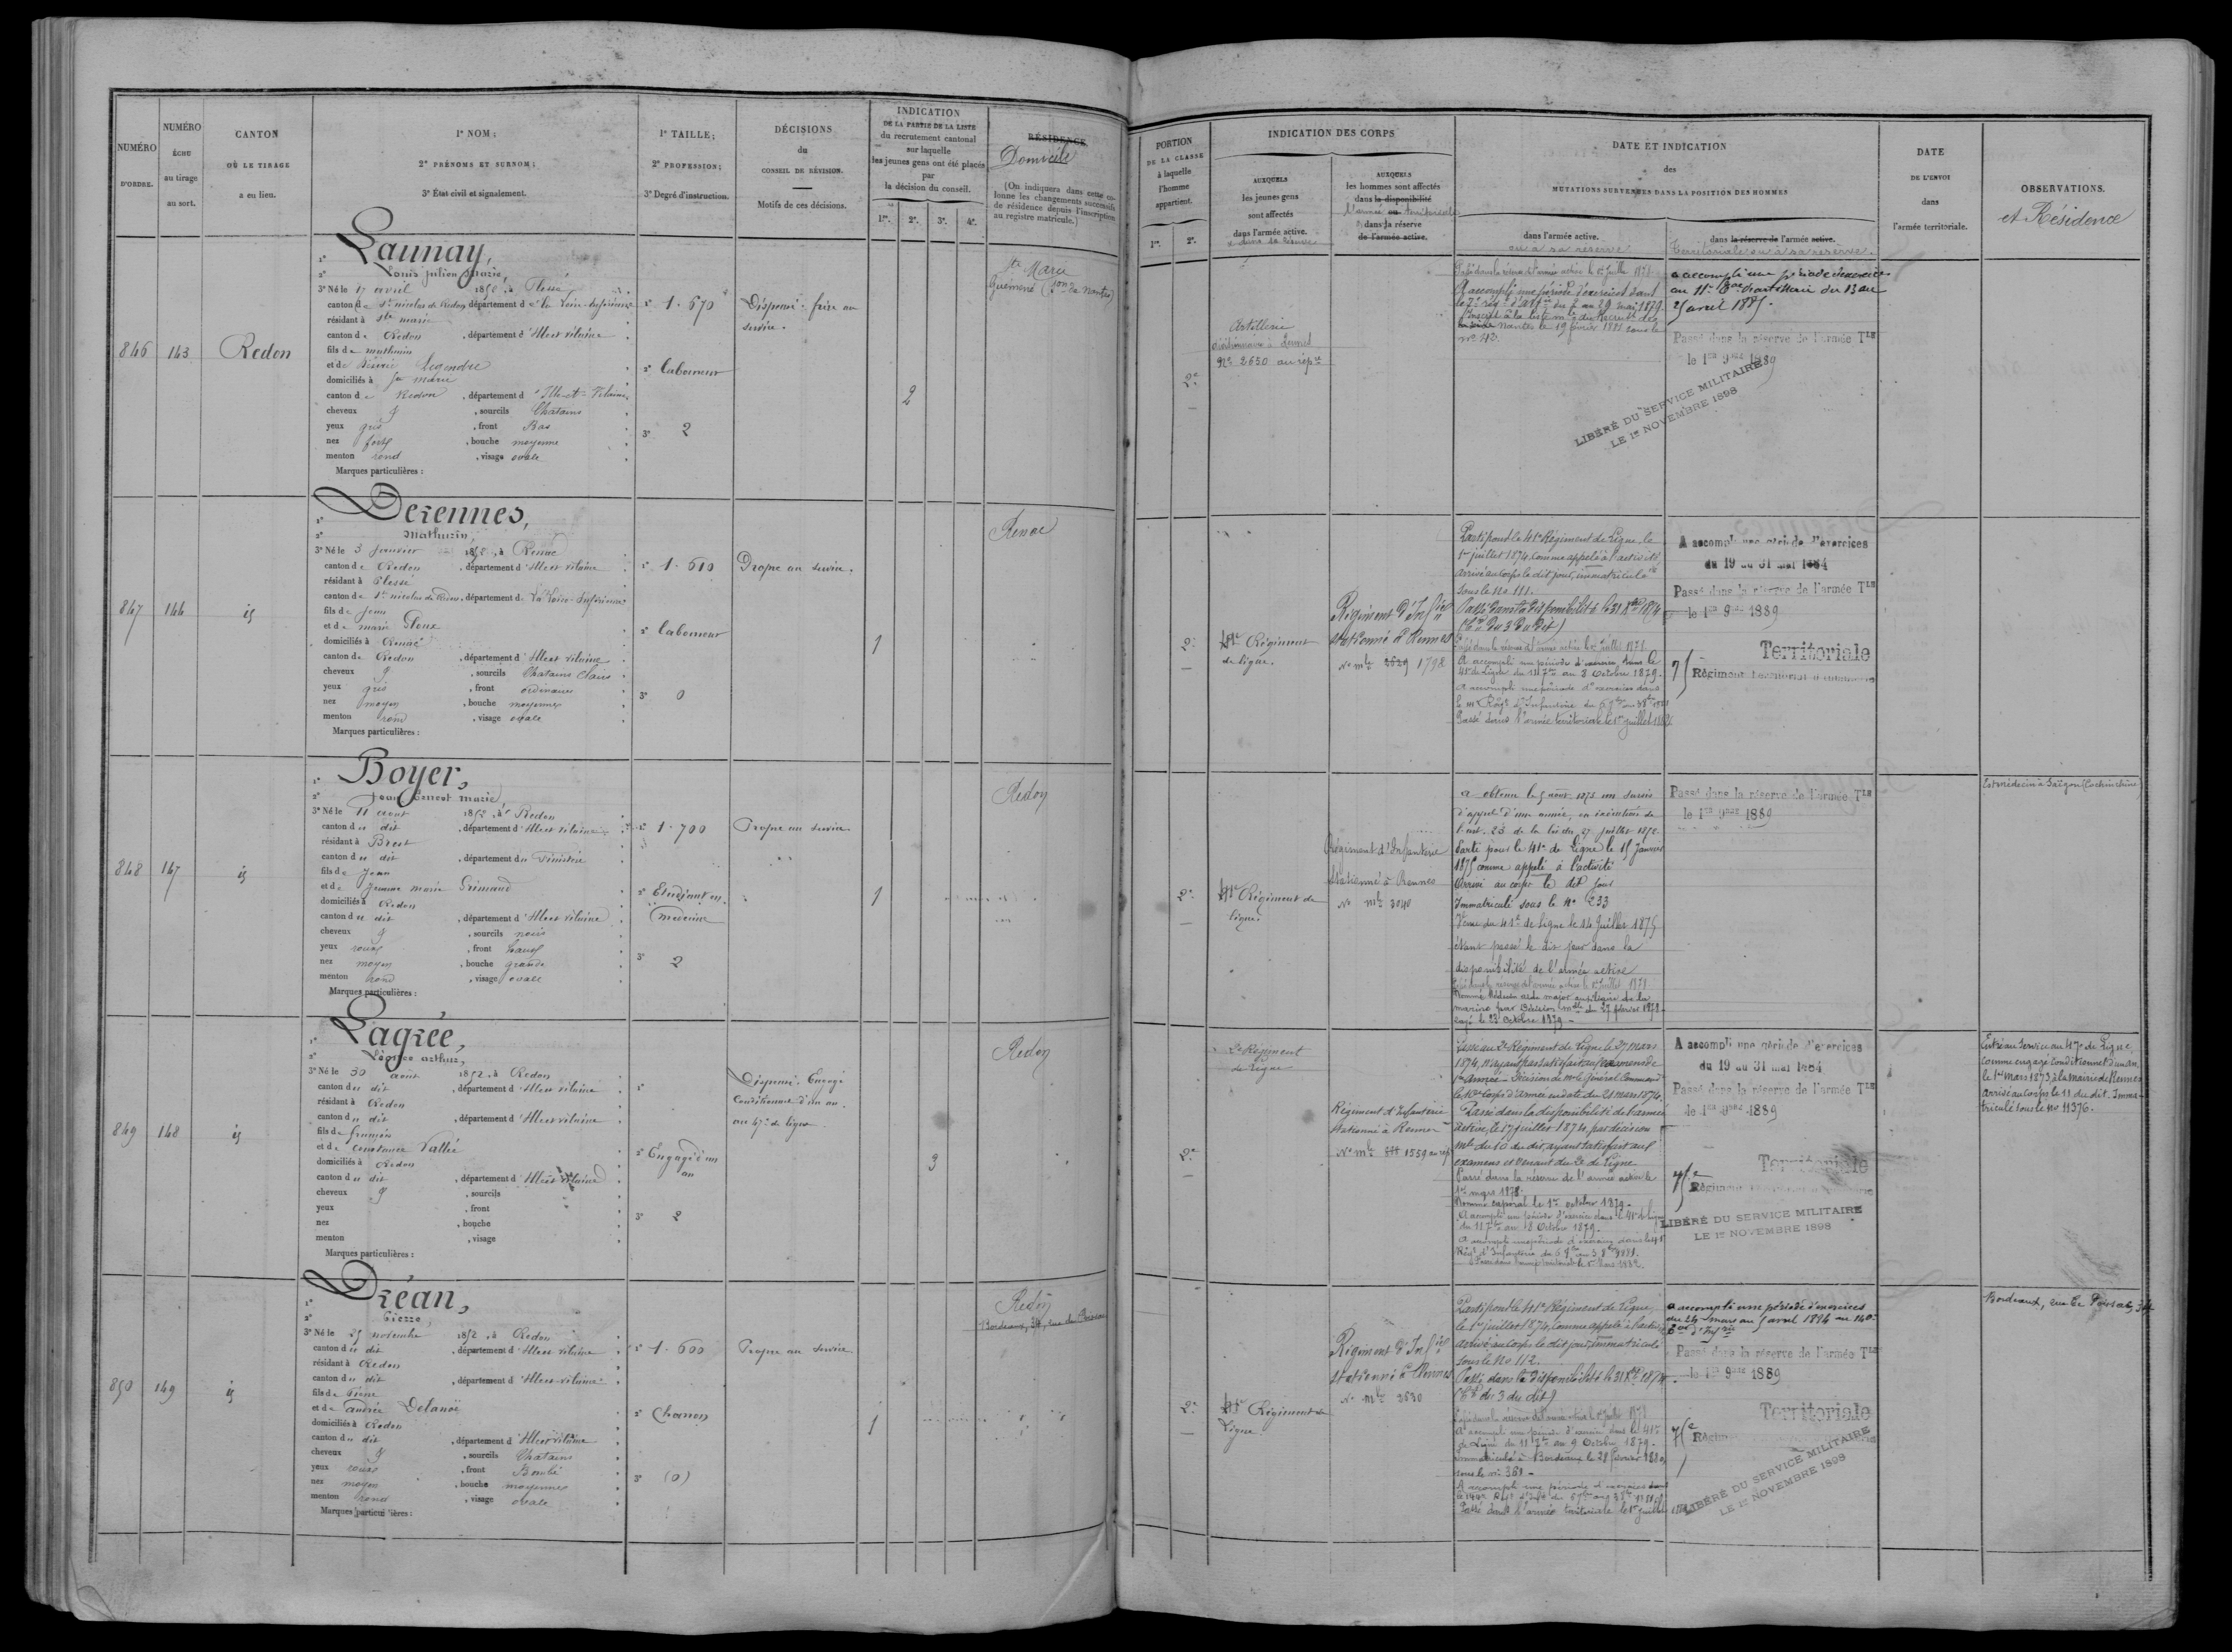 NUMÉRO
D'ORDRE.
NUMÉRO
ÉCHU
au tirage
au sort.
CANTON
OÙ LE TIRAGE
a eu lieu.
1º NOM;
2º PRÉNOMS ET SURNOM;
3º État civil et signalement.
1º TAILLE;
2º PROFESSION;
3º Degré d'instruction.
DÉCISIONS
du
CONSEIL DE RÉVISION.
Motifs de ces décisions.
INDICATION
DE LA PARTIE DE LA LISTE
du recrutement cantonal
sur laquelle
les jeunes gens ont été placés
par
la décision du conseil.
1re. 2e. 3e. 4e.
RÉSIDENCE
Domicile
(On indiquera dans cette co-
lonne les changements successifs
de résidence depuis l'inscription
au registre matricule.)
846
143
Redon
1º Launay,
2º Louis Julien Marie,
3º Né le 17 avril 1852, à Plessé
canton de St nicolas de Redon, département de la Loire-Inférieure
résidant à Ste marie
canton de Redon, département d'Ille et vilaine
fils de mathurin
et de Désirée Legendre
domiciliés à Ste marie
canton de Redon, département d'Ille-et-Vilaine
cheveux g, sourcils Chatains
yeux gris, front Bas
nez fort, bouche moyenne
menton rond, visage ovale
Marques particulières :
1º 1.670
2º laboureur
3º 2
Dispensé. frère au
service.
2
Ste Marie
Guémené (son de Nantes)
847
144
id
1º Derennes,
2º Mathurin,
3º Né le 3 Janvier 1852, à Renac
canton de Redon, département d'Ille et vilaine
résidant à Plessé
canton de St nicolas de Redon, département de La Loire-Inférieure
fils de Jean
et de marie Floux
domiciliés à Renac
canton de Redon, département d'Ille et vilaine
cheveux g, sourcils Chatains clairs
yeux gris, front ordinaire
nez moyen, bouche moyenne
menton rond, visage ovale
Marques particulières :
1º 1.610
2º laboureur
3º 0
Propre au service.
1
Renac
848
147
id
1º Boyer,
2º Jean Ernest Marie,
3º Né le 11 aout 1852, à Redon
canton du dit, département d'Ille et vilaine
résidant à Brest
canton du dit, département du Finistère
fils de Jean
et de Jeanne marie Grimaud
domiciliés à Redon
canton du dit, département d'Ille et vilaine
cheveux g, sourcils noirs
yeux roux, front haut
nez moyen, bouche grande
menton rond, visage ovale
Marques particulières :
1º 1.700
2º Etudiant en
medecine
3º 2
Propre au service
1
Redon
849
148
id
1º Lagrée,
2º Léonce arthur,
3º Né le 30 août 1852, à Redon
canton du dit, département d'Ille et vilaine
résidant à Redon
canton du dit, département d'Ille et vilaine
fils de françois
et de constance Vallée
domiciliés à Redon
canton du dit, département d'Ille et vilaine
cheveux g, sourcils
yeux, front
nez, bouche
menton, visage
Marques particulières :
1º
2º Engagé d'un
an
3º 2
Dispensé. Engagé
Conditionnel d'un an
au 47e de ligne
3
Redon
850
149
id
1º Dréan,
2º Pierre,
3º Né le 25 novembre 1852, à Redon
canton du dit, département d'Ille et vilaine
résidant à Redon
canton du dit, département d'Ille et vilaine
fils de Pierre
et de andrée Delanoë
domiciliés à Redon
canton du dit, département d'Ille et vilaine
cheveux g, sourcils Chatains
yeux roux, front Bombé
nez moyen, bouche moyenne
menton rond, visage ovale
Marques particulières :
1º 1.600
2º Charron
3º (0)
Propre au service
1
Redon
Bordeaux, 34, rue du
PORTION
DE LA CLASSE
à laquelle
l'homme
appartient.
1re. 2e.
INDICATION DES CORPS
AUXQUELS
les jeunes gens
sont affectés
dans l'armée active.
et dans sa réserve
AUXQUELS
les hommes sont affectés
dans la disponibilité
l'armée ou territoriale
dans la réserve
de l'armée active.
DATE ET INDICATION
des
MUTATIONS SURVENUES DANS LA POSITION DES HOMMES
dans l'armée active.
ou à sa réserve
dans la réserve de l'armée active.
territoriale ou à sa réserve.
DATE
DE L'ENVOI
dans
l'armée territoriale.
OBSERVATIONS.
et Résidence
2e
Artillerie
stationnée à Rennes
No 2650 au rép
Passé dans la réserve de l'armée active le 1er Juillet 1878
A accompli une période d'exercices dans
le 7e régt d'Artie du 2 au 29 mai 1879.
Inscrit à la liste mle du Recrutt de
Nantes le 19 février 1883 sous le
no 40.
a accompli une période d'exercices
au 11e d'artillerie du 13 au
25 avril 1885.
Passé dans la réserve de l'armée Tle
le 1er 9bre 1889
LIBÉRÉ DU SERVICE MILITAIRE
LE 1er NOVEMBRE 1898
2e
41e Régiment
de ligne.
Régiment d'Infie
stationné à Rennes
No mle 2629 1792
Parti pour le 41e Régiment de Ligne, le
1er juillet 1874, comme appelé à l'activité
arrivé au corps le dit jour, immatriculé
sous le No 111.
Passé dans la disponibilité le 31 Xbre 1874
(Cre du 3 du dit)
Passé dans la réserve de l'armée active le 1er Juillet 1878.
A accompli une période d'exercices dans le
41e de Ligne du 11 7bre au 8 Octobre 1879.
A accompli une période d'exercices dans
le Régt d'Infanterie du
Passé dans l'armée territoriale le 1er juillet
A accompli une période d'exercices
du 19 au 31 mai 1884
Passé dans la réserve de l'armée Tle
le 1er 9bre 1889
Territoriale
75 Régiment territorial d'infanterie
2e
41e Régiment de
ligne
Régiment d'Infanterie
Stationné à Rennes
No mle 3040
a obtenu le 5 aout 1873 un sursis
d'appel d'une année, en exécution de
l'art. 23 de la loi du 27 juillet 1872.
Parti pour le 41e de Ligne le 15 Janvier
1875 comme appelé à l'activité
Arrivé au corps le dit jour
Immatriculé sous le No 233
Venu du 41e de Ligne le 14 Juillet 1875
étant passé le dit jour dans la
disponibilité de l'armée active
Passé dans la réserve de l'armée active le 1er Juillet 1878.
Nommé Médecin aide major auxiliaire de la
marine par Décision mlle du 27 février 1879
rayé le 23 octobre 1879
Passé dans la réserve de l'armée Tle
le 1er 9bre 1889
Est médecin à Saïgon (Cochinchine)
2e
2e Régiment
de ligne
Régiment d'Infanterie
stationné à Rennes
No mle 1559 au rép
Passé au 2e Régiment de Ligne le 27 mars
1874, n'ayant pas satisfait aux examens de
1re Année – Décision de Mr le Général Commandt
le 10e Corps d'armée en date du 21 mars 1874.
Passé dans la disponibilité de l'armée
active, le 17 juillet 1874, par décision
mlle du 10 du dit, ayant satisfait aux
examens et venant du 2e de Ligne
Passé dans la réserve de l'armée active le
1er mars 1878.
Nommé caporal le 1er octobre 1879.
A accompli une période d'exercices dans le 41e de Ligne
du 11 7bre au 8 Octobre 1879.
A accompli une période d'exercices dans le 41e
Régt d'Infanterie du
Passé dans l'armée territoriale le
A accompli une période d'exercices
du 19 au 31 mai 1884
Passé dans la réserve de l'armée Tle
le 1er 9bre 1889
Territoriale
75e Régiment territorial d'infanterie
LIBÉRÉ DU SERVICE MILITAIRE
LE 1er NOVEMBRE 1898
Entré au service au 47e de Ligne,
comme engagé Conditionnel d'un an,
le 1er Mars 1873, à la mairie de Rennes
Arrivé au corps le 11 du dit. Imma-
triculé sous le No 11376.
2e
41e Régiment de
Ligne
Régiment d'Infie
stationné à Rennes
No mle 2630
Parti pour le 41e Régiment de Ligne,
le 1er juillet 1874, comme appelé à l'activité
arrivé au corps le dit jour, immatriculé
sous le No 112.
Passé dans la disponibilité le 31 Xbre 1874
(Cre du 3 du dit)
Passé dans la réserve de l'armée active le 1er Juillet 1878
A accompli une période d'exercices dans le 41e
de Ligne du 11 7bre au 9 Octobre 1879.
Immatriculé à Bordeaux le 28 février 1880,
sous le no 361
A accompli une période d'exercices dans
Passé dans l'armée territoriale le 1er juillet
a accompli une période d'exercices
du 24 mars au 5 avril 1884 au 140e
d'Infie
Passé dans la réserve de l'armée Tle
le 1er 9bre 1889
Territoriale
75e Régim
LIBÉRÉ DU SERVICE MILITAIRE
LE 1er NOVEMBRE 1898
Bordeaux, rue de 34